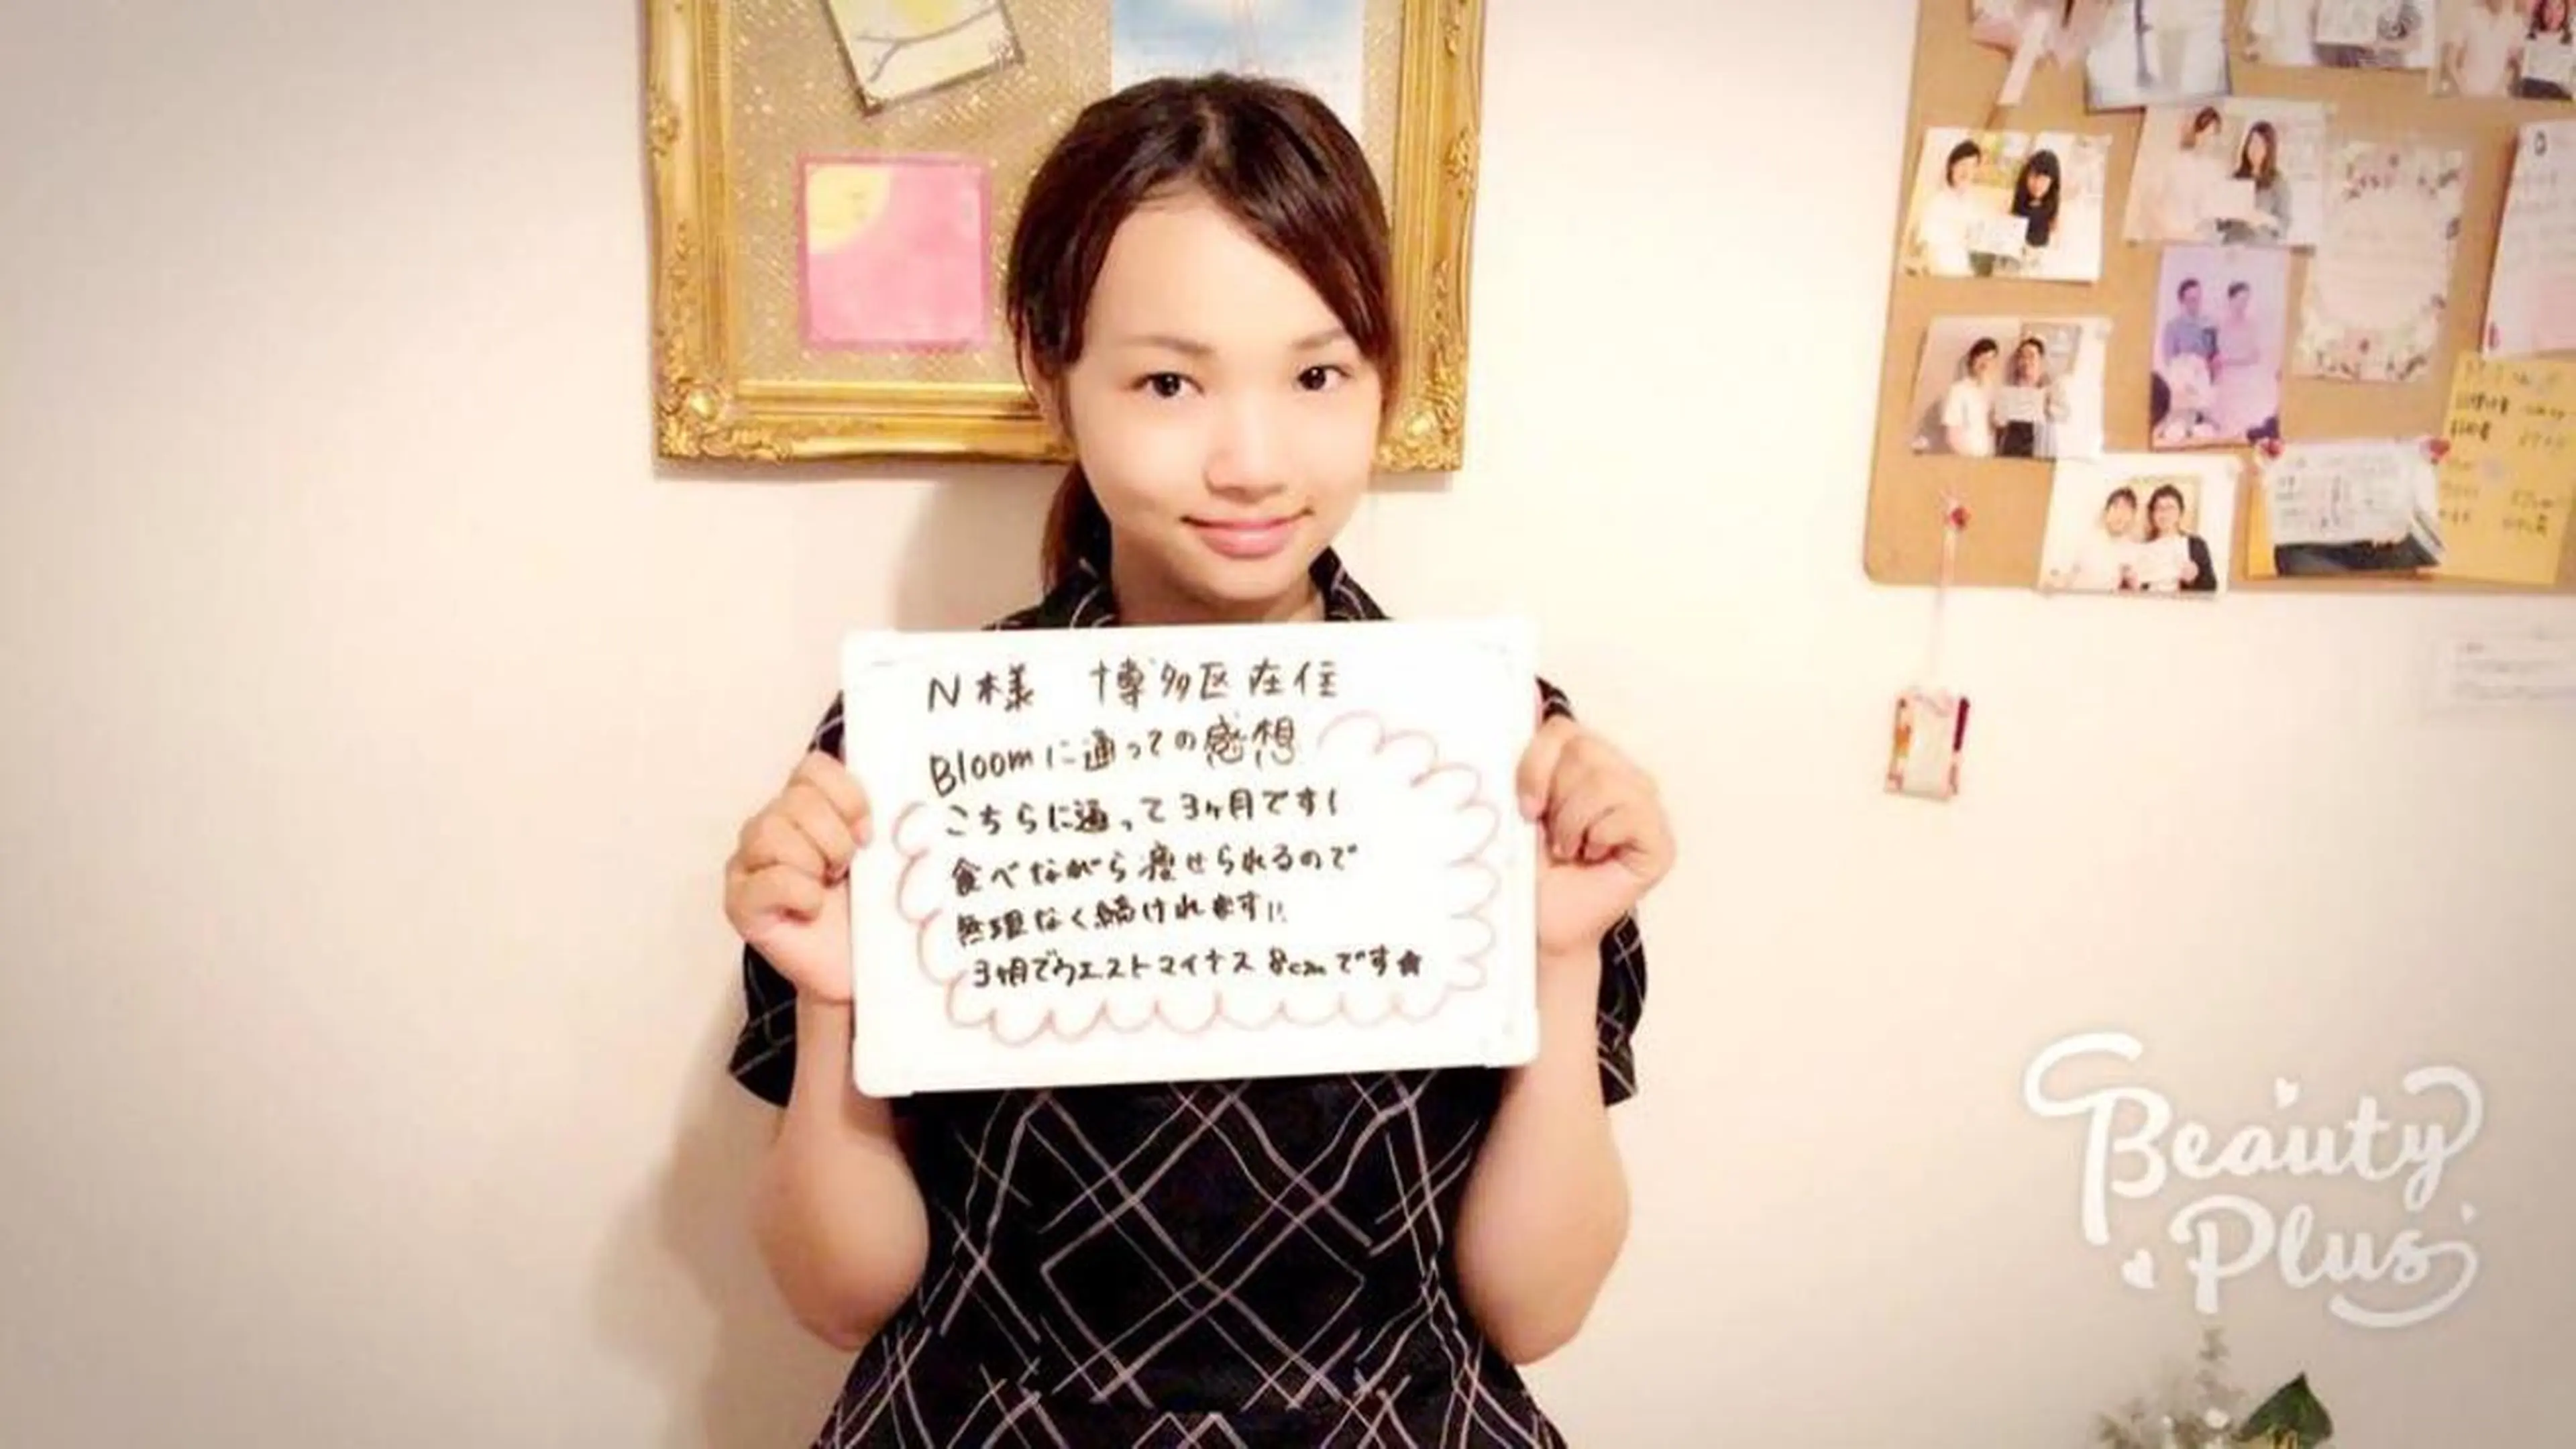 N様 博多区在住
Bloomに通っての感想
こちらに通って3ヶ月です!
食べながら痩せられるので
無理なく続けれます!!
3ヶ月でウエストマイナス8cmです★
Beauty
Plus